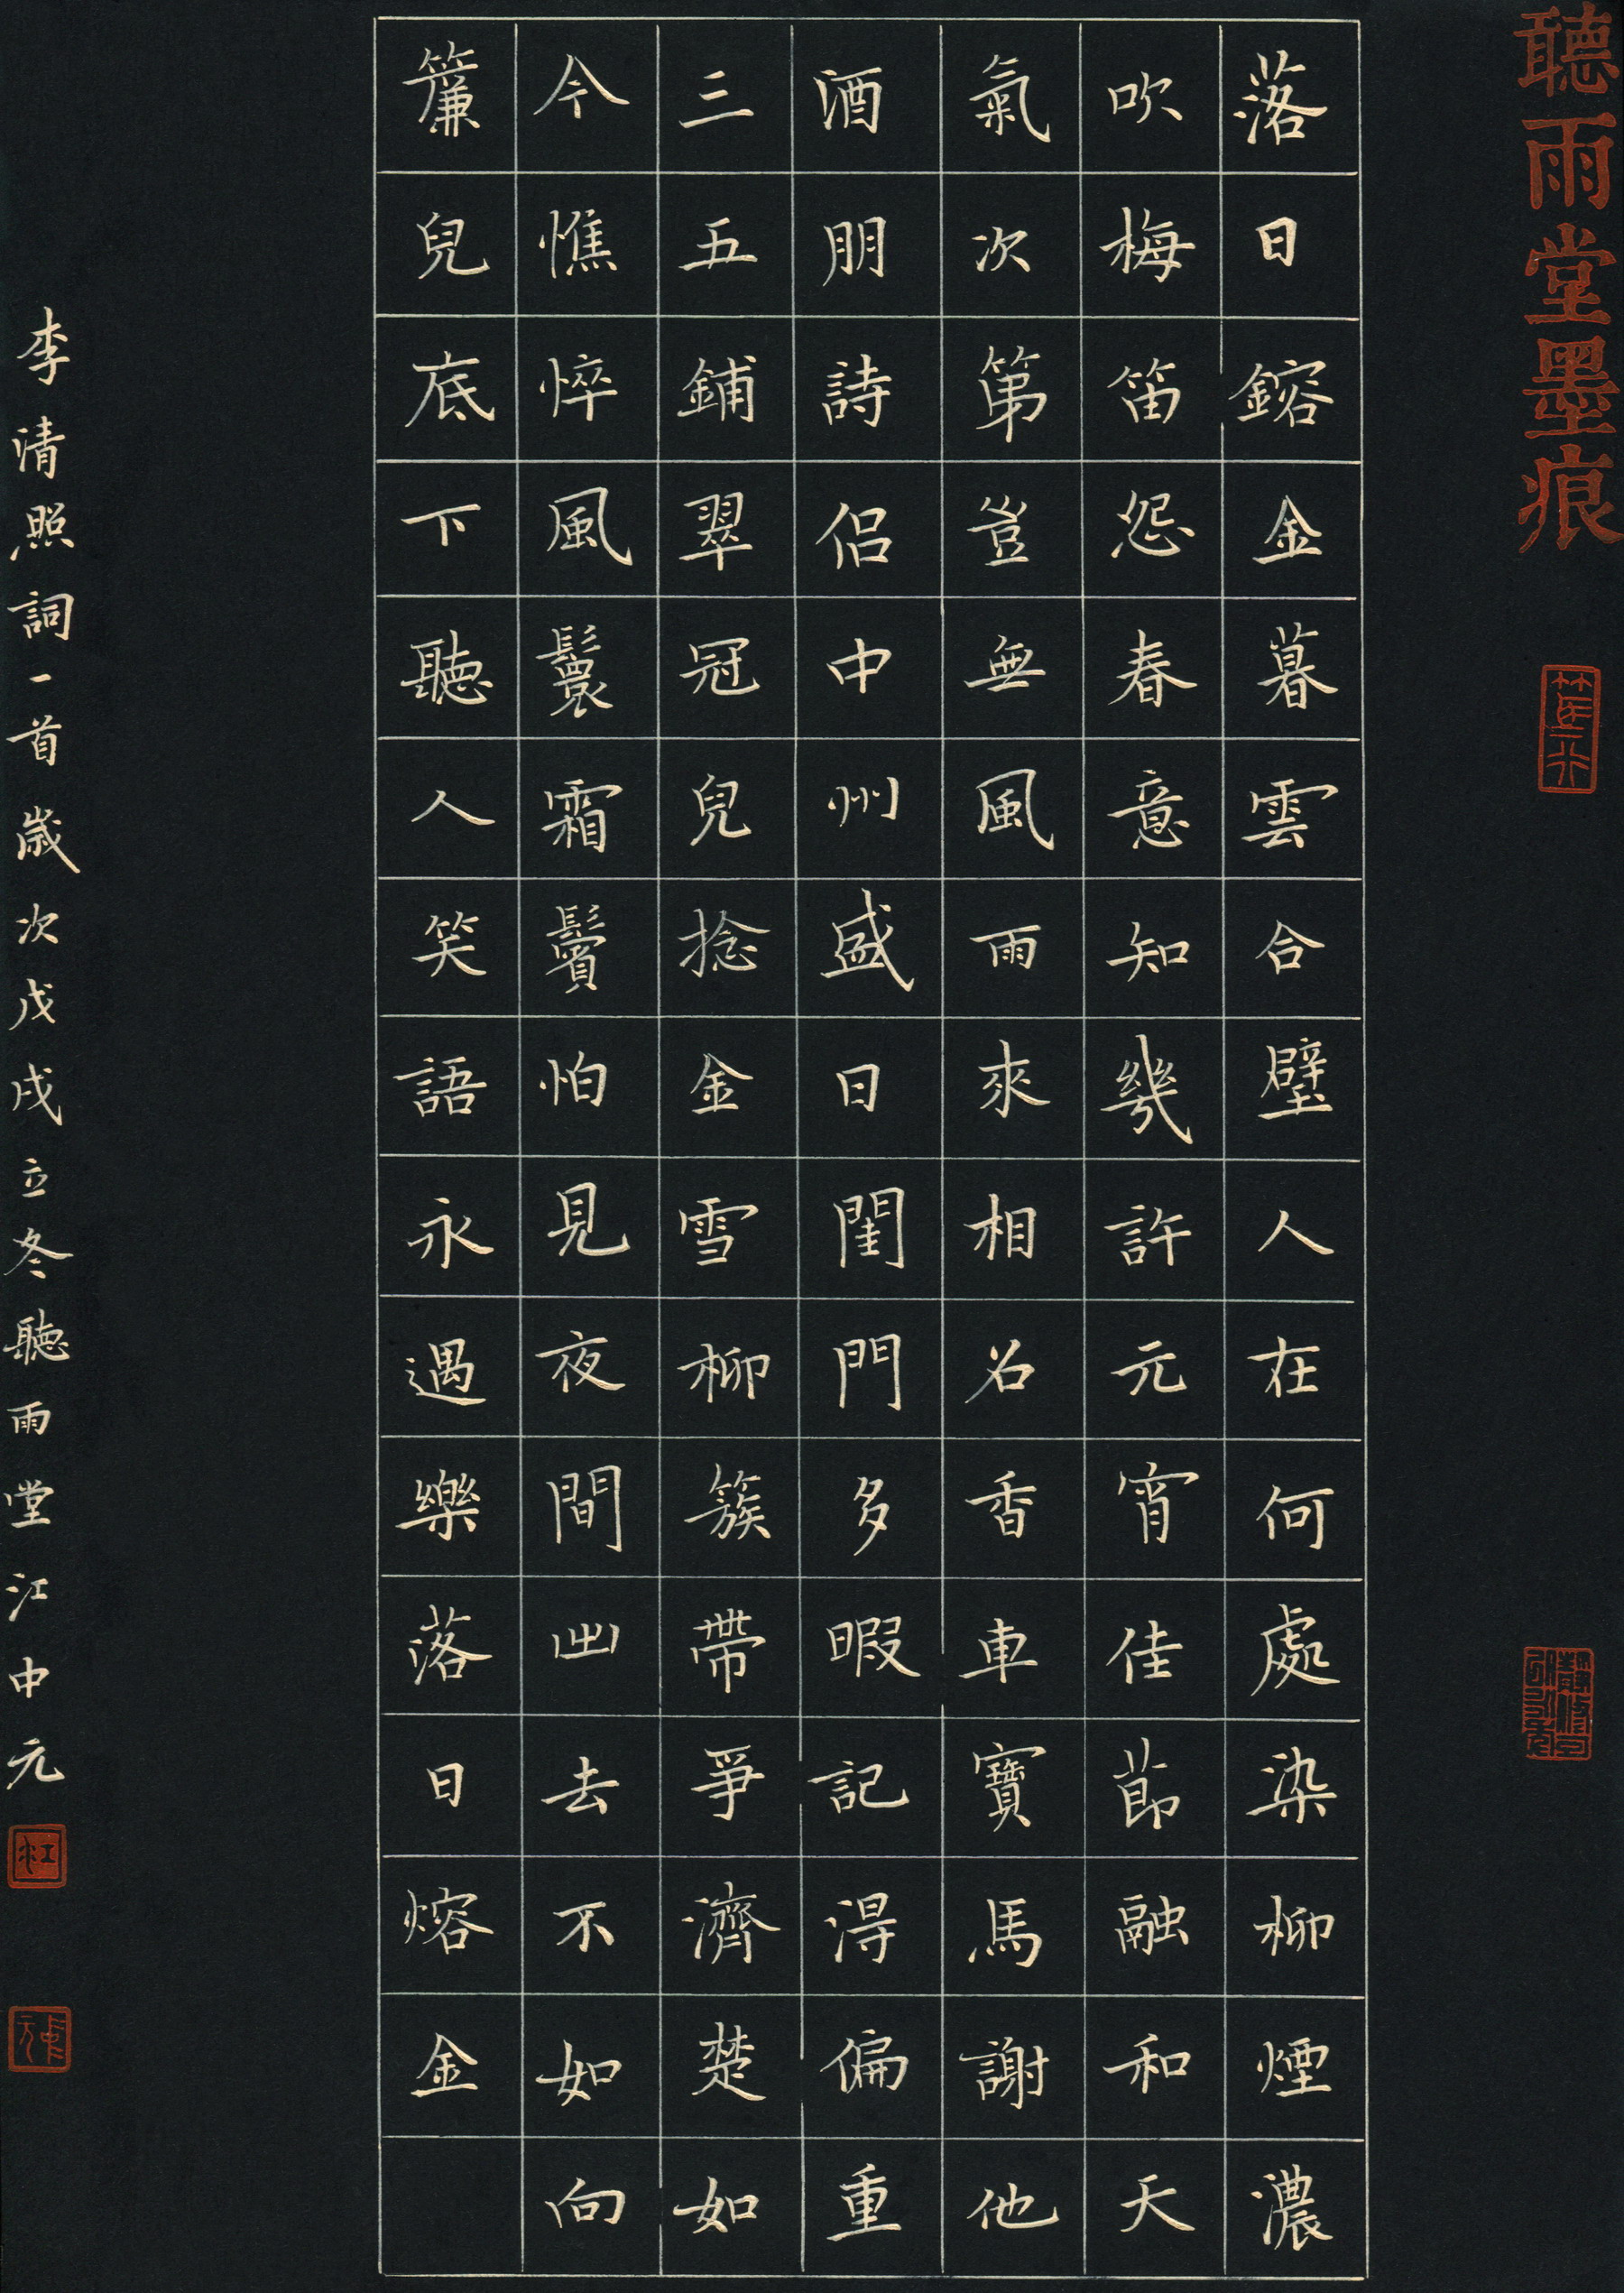 聽雨堂墨痕
落日鎔金暮雲合壁人在何處染柳煙濃
吹梅笛怨春意知幾許元宵佳節融和天
氣次第豈無風雨來相召香車寶馬謝他
酒朋詩侶中州盛日閨門多暇記得偏重
三五鋪翠冠兒捻金雪柳簇帶爭濟楚如
今憔悴風鬟霜鬢怕見夜間出去不如向
簾兒底下聽人笑語永遇樂落日熔金
李清照詞一首歲次戊戌立冬聽雨堂江中元